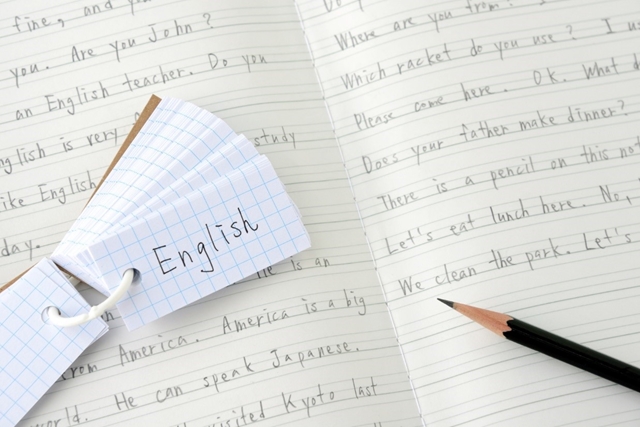 fine, and you
you. Are you John?
an English teacher. Do you
English is very
study
like English
day.
He is an
America. America is a big
from
world. He can speak Japanese.
visited Kyoto last
English
Where are you from? I
Which racket do you use? I
Please come here. OK. What
Does your father make dinner?
There is a pencil on this
Let's eat lunch here. No,
We clean the park. Let's